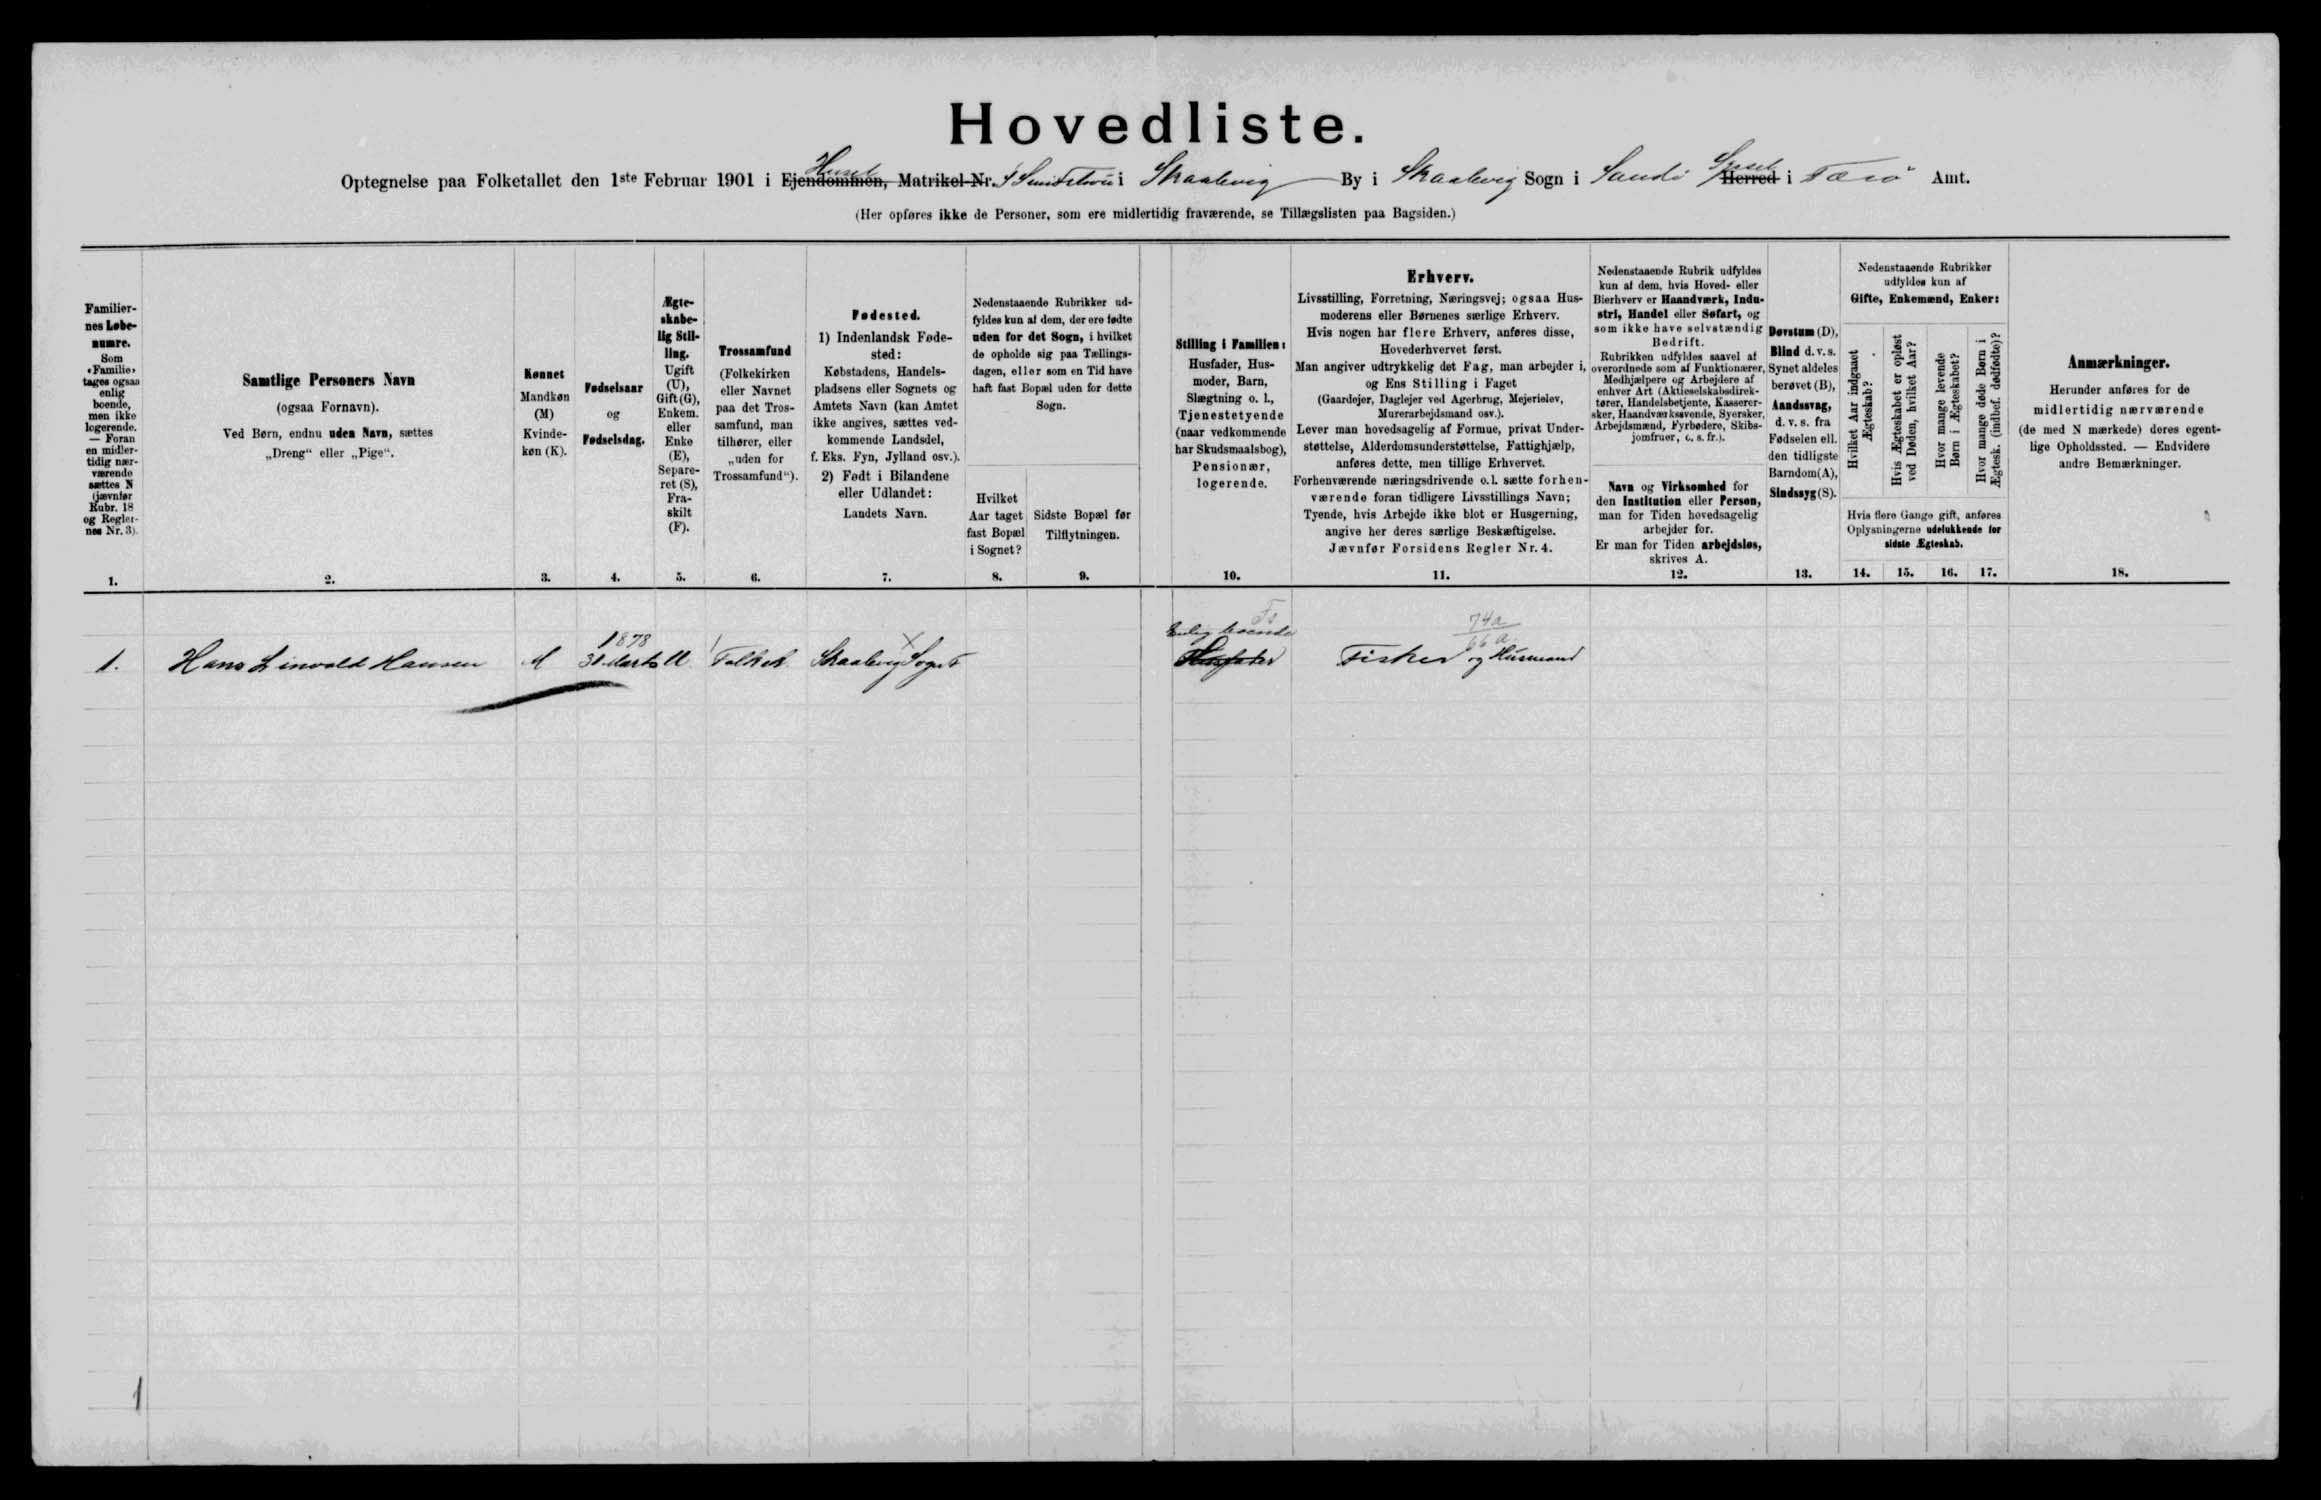 Hovedliste.
Huset Syssel
Optegnelse paa Folketallet den 1ste Februar 1901 i Ejendommen, Matrikel-Nr. i Skaalevig By i Skaalevig Sogn i Sandø Herred i Færø Amt.
(Her opføres ikke de Personer, som ere midlertidig fraværende, se Tillægslisten paa Bagsiden.)
Familier-
nes Løbe-
numre.
Som
«Familie»
tages ogsaa
enlig
boende,
men ikke
logerende.
— Foran
en midler-
tidig nær-
værende
sættes N
(jævnfør
Rubr. 18
og Regler-
nes Nr. 3).
1.
Samtlige Personers Navn
(ogsaa Fornavn).
Ved Børn, endnu uden Navn, sættes
„Dreng“ eller „Pige“.
2.
Kønnet
Mandkøn
(M)
Kvinde-
køn (K).
3.
Fødselsaar
og
Fødselsdag.
4.
Ægte-
skabe-
lig Stil-
ling.
Ugift
(U),
Gift (G),
Enkem.
eller
Enke
(E),
Separe-
ret (S),
Fra-
skilt
(F).
5.
Trossamfund
(Folkekirken
eller Navnet
paa det Tros-
samfund, man
tilhører, eller
„uden for
Trossamfund“).
6.
Fødested.
1) Indenlandsk Føde-
sted:
Købstadens, Handels-
pladsens eller Sognets og
Amtets Navn (kan Amtet
ikke angives, sættes ved-
kommende Landsdel,
f. Eks. Fyn, Jylland osv.).
2) Født i Bilandene
eller Udlandet:
Landets Navn.
7.
Nedenstaaende Rubrikker ud-
fyldes kun af dem, der ere fødte
uden for det Sogn, i hvilket
de opholde sig paa Tællings-
dagen, eller som en Tid have
haft fast Bopæl uden for dette
Sogn.
Hvilket
Aar taget
fast Bopæl
i Sognet?
8.
Sidste Bopæl før
Tilflytningen.
9.
Stilling i Familien:
Husfader, Hus-
moder, Barn,
Slægtning o. l.,
Tjenestetyende
(naar vedkommende
har Skudsmaalsbog),
Pensionær,
logerende.
10.
Erhverv.
Livsstilling, Forretning, Næringsvej; ogsaa Hus-
moderens eller Børnenes særlige Erhverv.
Hvis nogen har flere Erhverv, anføres disse,
Hovederhvervet først.
Man angiver udtrykkelig det Fag, man arbejder i,
og Ens Stilling i Faget
(Gaardejer, Daglejer ved Agerbrug, Mejerielev,
Murerarbejdsmand osv.).
Lever man hovedsagelig af Formue, privat Under-
støttelse, Alderdomsunderstøttelse, Fattighjælp,
anføres dette, men tillige Erhvervet.
Forhenværende næringsdrivende o. l. sætte forhen-
værende foran tidligere Livsstillings Navn;
Tyende, hvis Arbejde ikke blot er Husgerning,
angive her deres særlige Beskæftigelse.
Jævnfør Forsidens Regler Nr. 4.
11.
Nedenstaaende Rubrik udfyldes
kun af dem, hvis Hoved- eller
Bierhverv er Haandværk, Indu-
stri, Handel eller Søfart, og
som ikke have selvstændig
Bedrift.
Rubrikken udfyldes saavel af
overordnede som af Funktionærer,
Medhjælpere og Arbejdere af
enhver Art (Aktieselskabsdirek-
tører, Handelsbetjente, Kasserer-
sker, Haandværkssvende, Syersker,
Arbejdsmænd, Fyrbødere, Skibs-
jomfruer, o. s. fr.).
Navn og Virksomhed for
den Institution eller Person,
man for Tiden hovedsagelig
arbejder for.
Er man for Tiden arbejdsløs,
skrives A.
12.
Døvstum (D),
Blind d. v. s.
Synet aldeles
berøvet (B),
Aandssvag,
d. v. s. fra
Fødselen ell.
den tidligste
Barndom (A),
Sindssyg (S).
13.
Nedenstaaende Rubrikker
udfyldes kun af
Gifte, Enkemænd, Enker:
Hvilket Aar indgaaet
Ægteskab?
Hvis Ægteskabet er opløst
ved Døden, hvilket Aar?
Hvor mange levende
Børn i Ægteskabet?
Hvor mange døde Børn i
Ægtesk. (indbef. dødfødte)?
Hvis flere Gange gift, anføres
Oplysningerne udelukkende for
sidste Ægteskab.
14. 15. 16. 17.
Anmærkninger.
Herunder anføres for de
midlertidig nærværende
(de med N mærkede) deres egent-
lige Opholdssted. — Endvidere
andre Bemærkninger.
18.
1878 Enlig boende Fs 74a
66a
1. Hans Linvald Hansen M 31 Marts U Folkek Skaalevig Sogn Husfader Fisker og Husmand
1